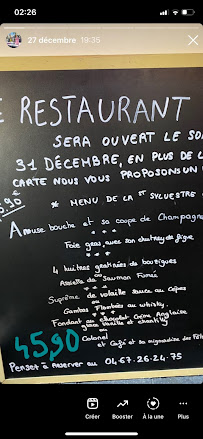 02:26
27 décembre 19:35
E RESTAURANT
SERA OUVERT LE SOI
31 DÉCEMBRE, EN PLUS DE L
CARTE NOUS VOUS PROPOSONS UN
5,90 €
* MENU DE LA ST SYLVESTRE
Amuse bouche et sa coupe de Champagne
Foie gras avec son chutney de figue
4 huitres gratinées de bouzigues
ou
Assiette de Saumon Fumé
Suprême de volaille sauce au cèpes
ou
Gambas Flambées au whisky
Fondant au chocolat Crème Anglaise
glace Vanille et chantilly
ou
45,90
Colonel
et Café et sa mignardise des Fêt
Pensez à réserver au 04.67.26.24.75
Créer
Booster
À la une
Plus